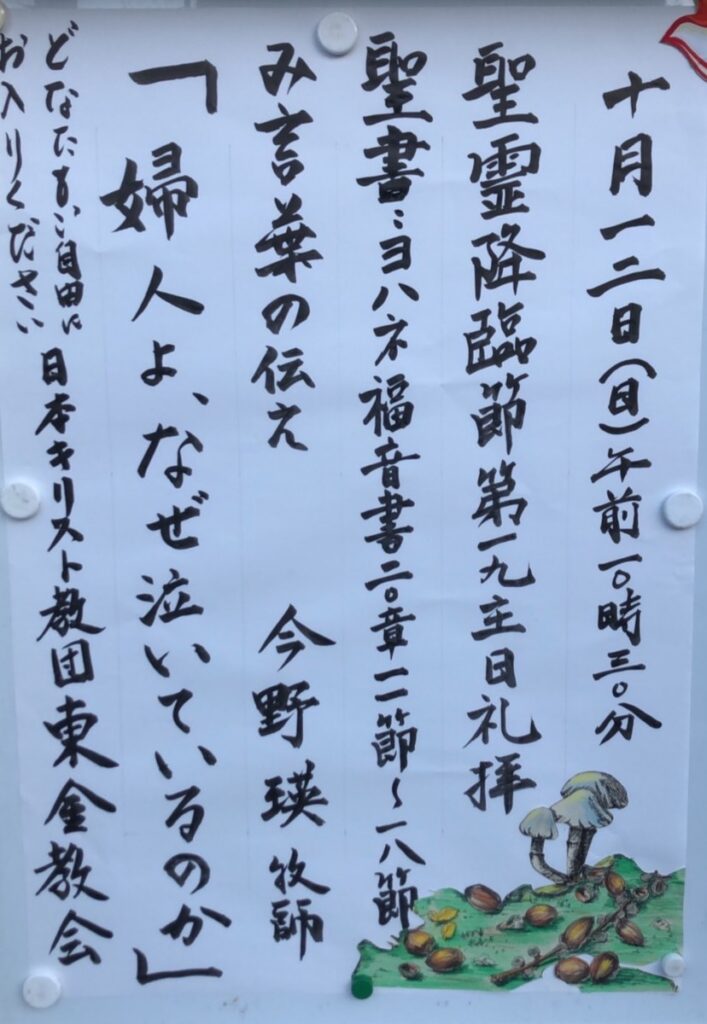 十月一二日（日）午前一〇時三〇分
聖霊降臨節第一九主日礼拝
聖書：ヨハネ福音書二〇章一一節〜一八節
み言葉の伝え　今野瑛牧師
「婦人よ、なぜ泣いているのか」
どなたもご自由に
お入りください
日本キリスト教団東金教会